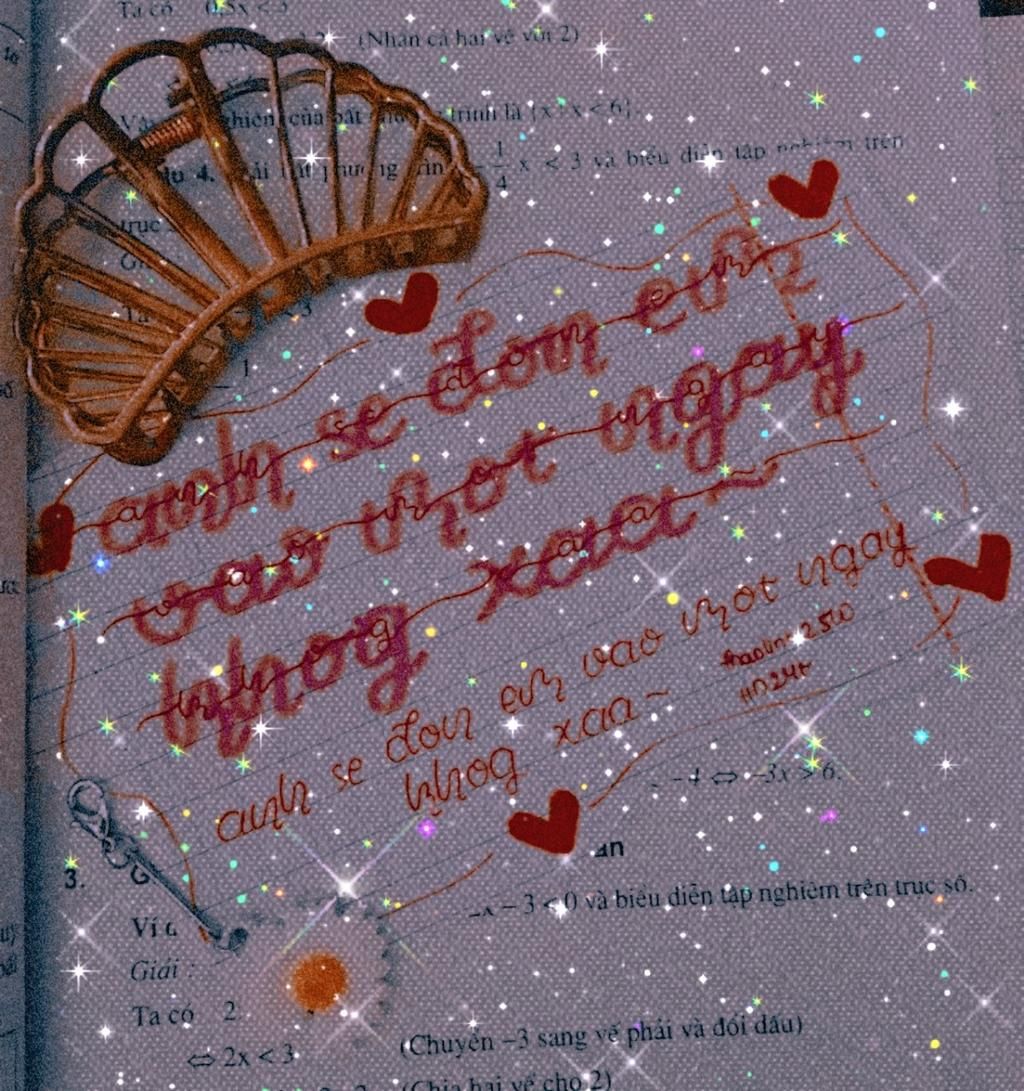 Ta có 0,5x < 3
(Nhân cả hai vế với 2)
nghiệm của bất phương trình là {x | x < 6}.
4. Giải bất phương trình -1/4 x < 3 và biểu diễn tập nghiệm trên
trục
anh se đon em
vao mot ngay
khog xaa~
anh se đon em vao mot ngay
khog xaa~
-4 ⇔ -3x > 6.
3.
-x – 3 < 0 và biểu diễn tập nghiệm trên trục số.
Giải :
Ta có 2
⇔ 2x < 3
(Chuyển –3 sang vế phải và đổi dấu)
(Chia hai vế cho 2)